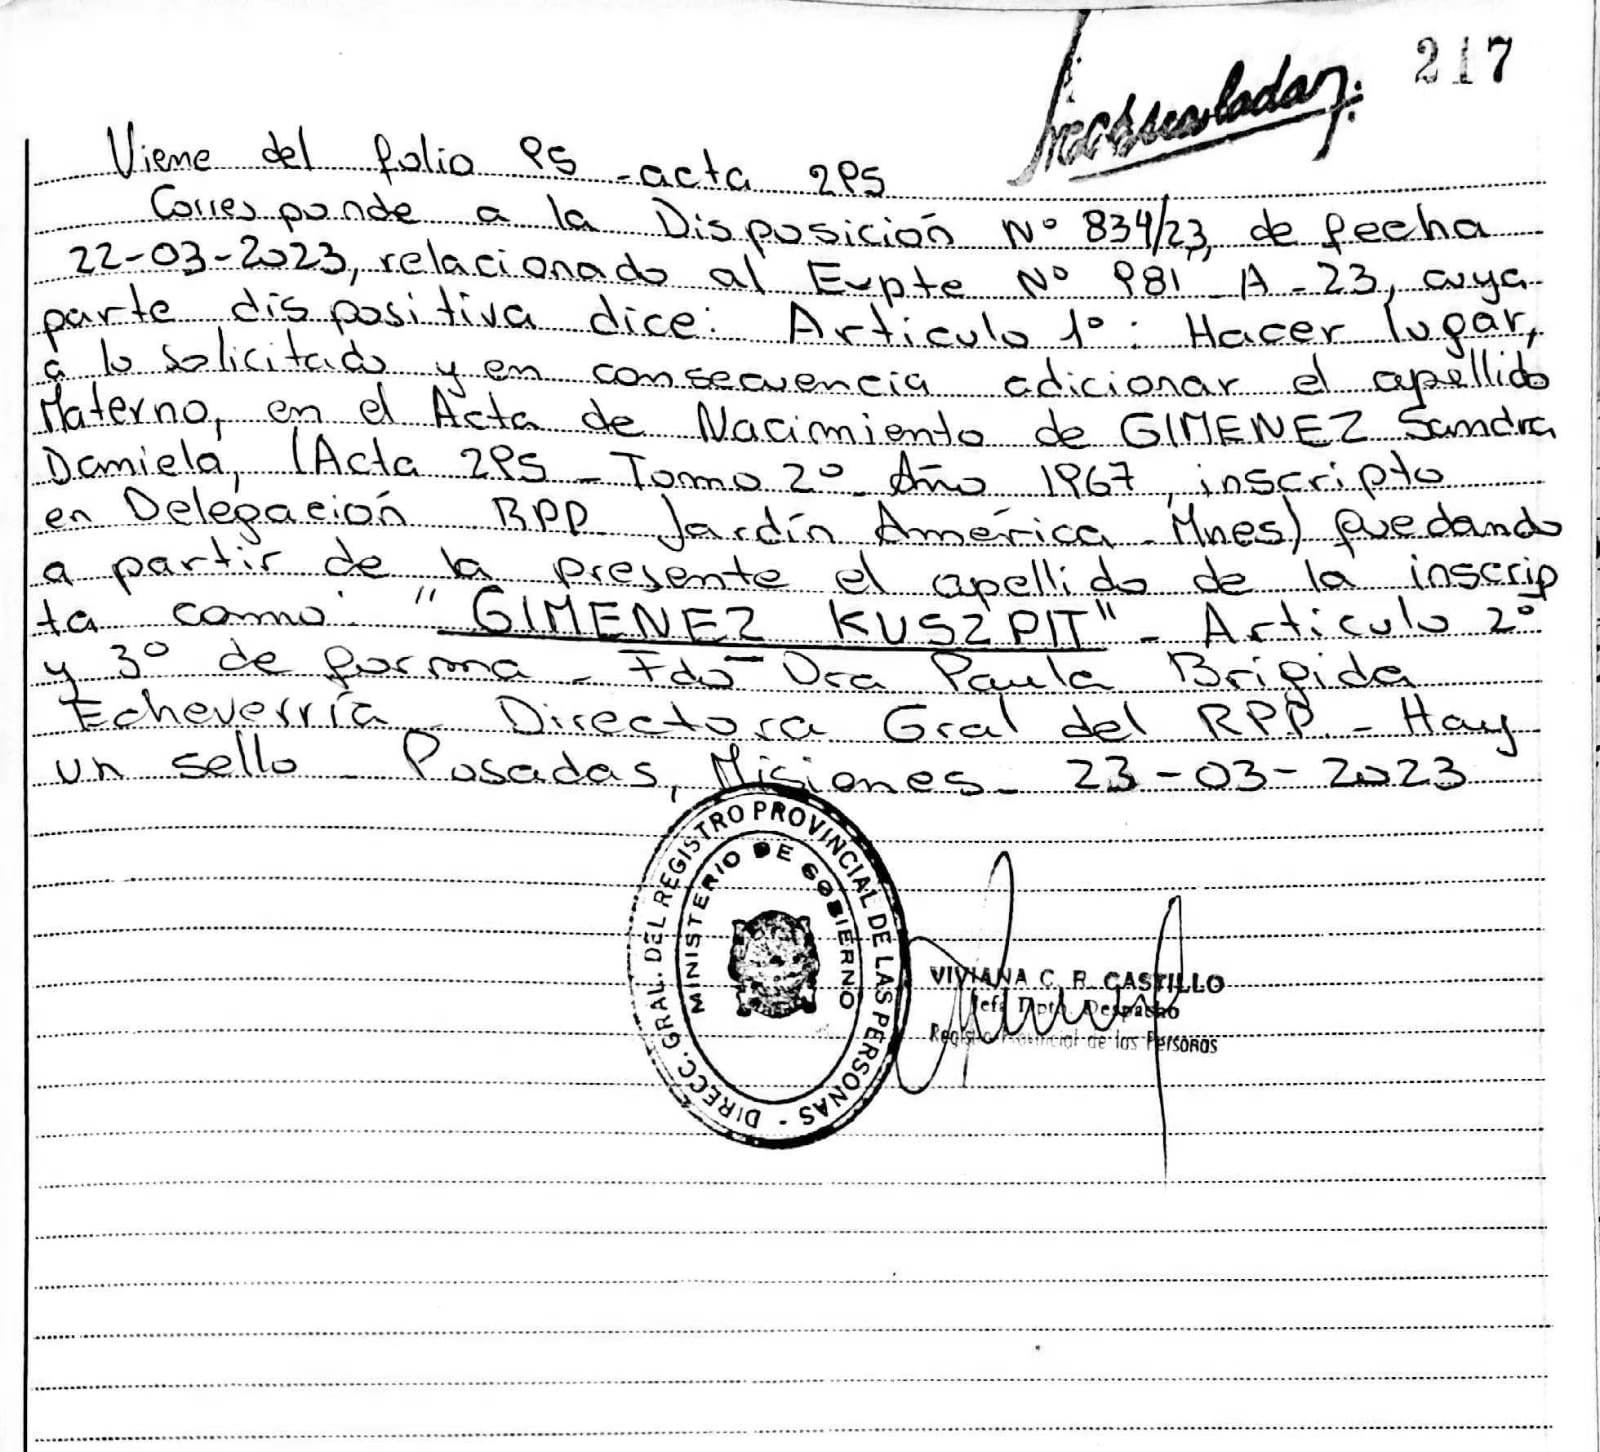 217
Viene del folio 95 - acta 295
Corresponde a la Disposición Nº 834/23, de fecha
22-03-2023, relacionado al Expte Nº 981 - A - 23, cuya
parte dispositiva dice: Articulo 1º: Hacer lugar,
a lo solicitado y en consecuencia adicionar el apellido
Materno, en el Acta de Nacimiento de GIMENEZ Sandra
Daniela, (Acta 295 - Tomo 2º - Año 1967, inscripto
en Delegación RPP Jardín América - Mnes) quedando
a partir de la presente el apellido de la inscrip
ta como: "GIMENEZ KUSZPIT" - Articulo 2º
y 3º de forma - Fdo Dra Paula Brigida
Echeverría - Directora Gral del RPP. - Hay
un sello - Posadas, Misiones - 23-03-2023
DIRECC. GRAL. DEL REGISTRO PROVINCIAL DE LAS PERSONAS -
MINISTERIO DE GOBIERNO
VIVIANA C. R. CASTILLO
Jefe Dpto. Despacho
Registro Provincial de las Personas